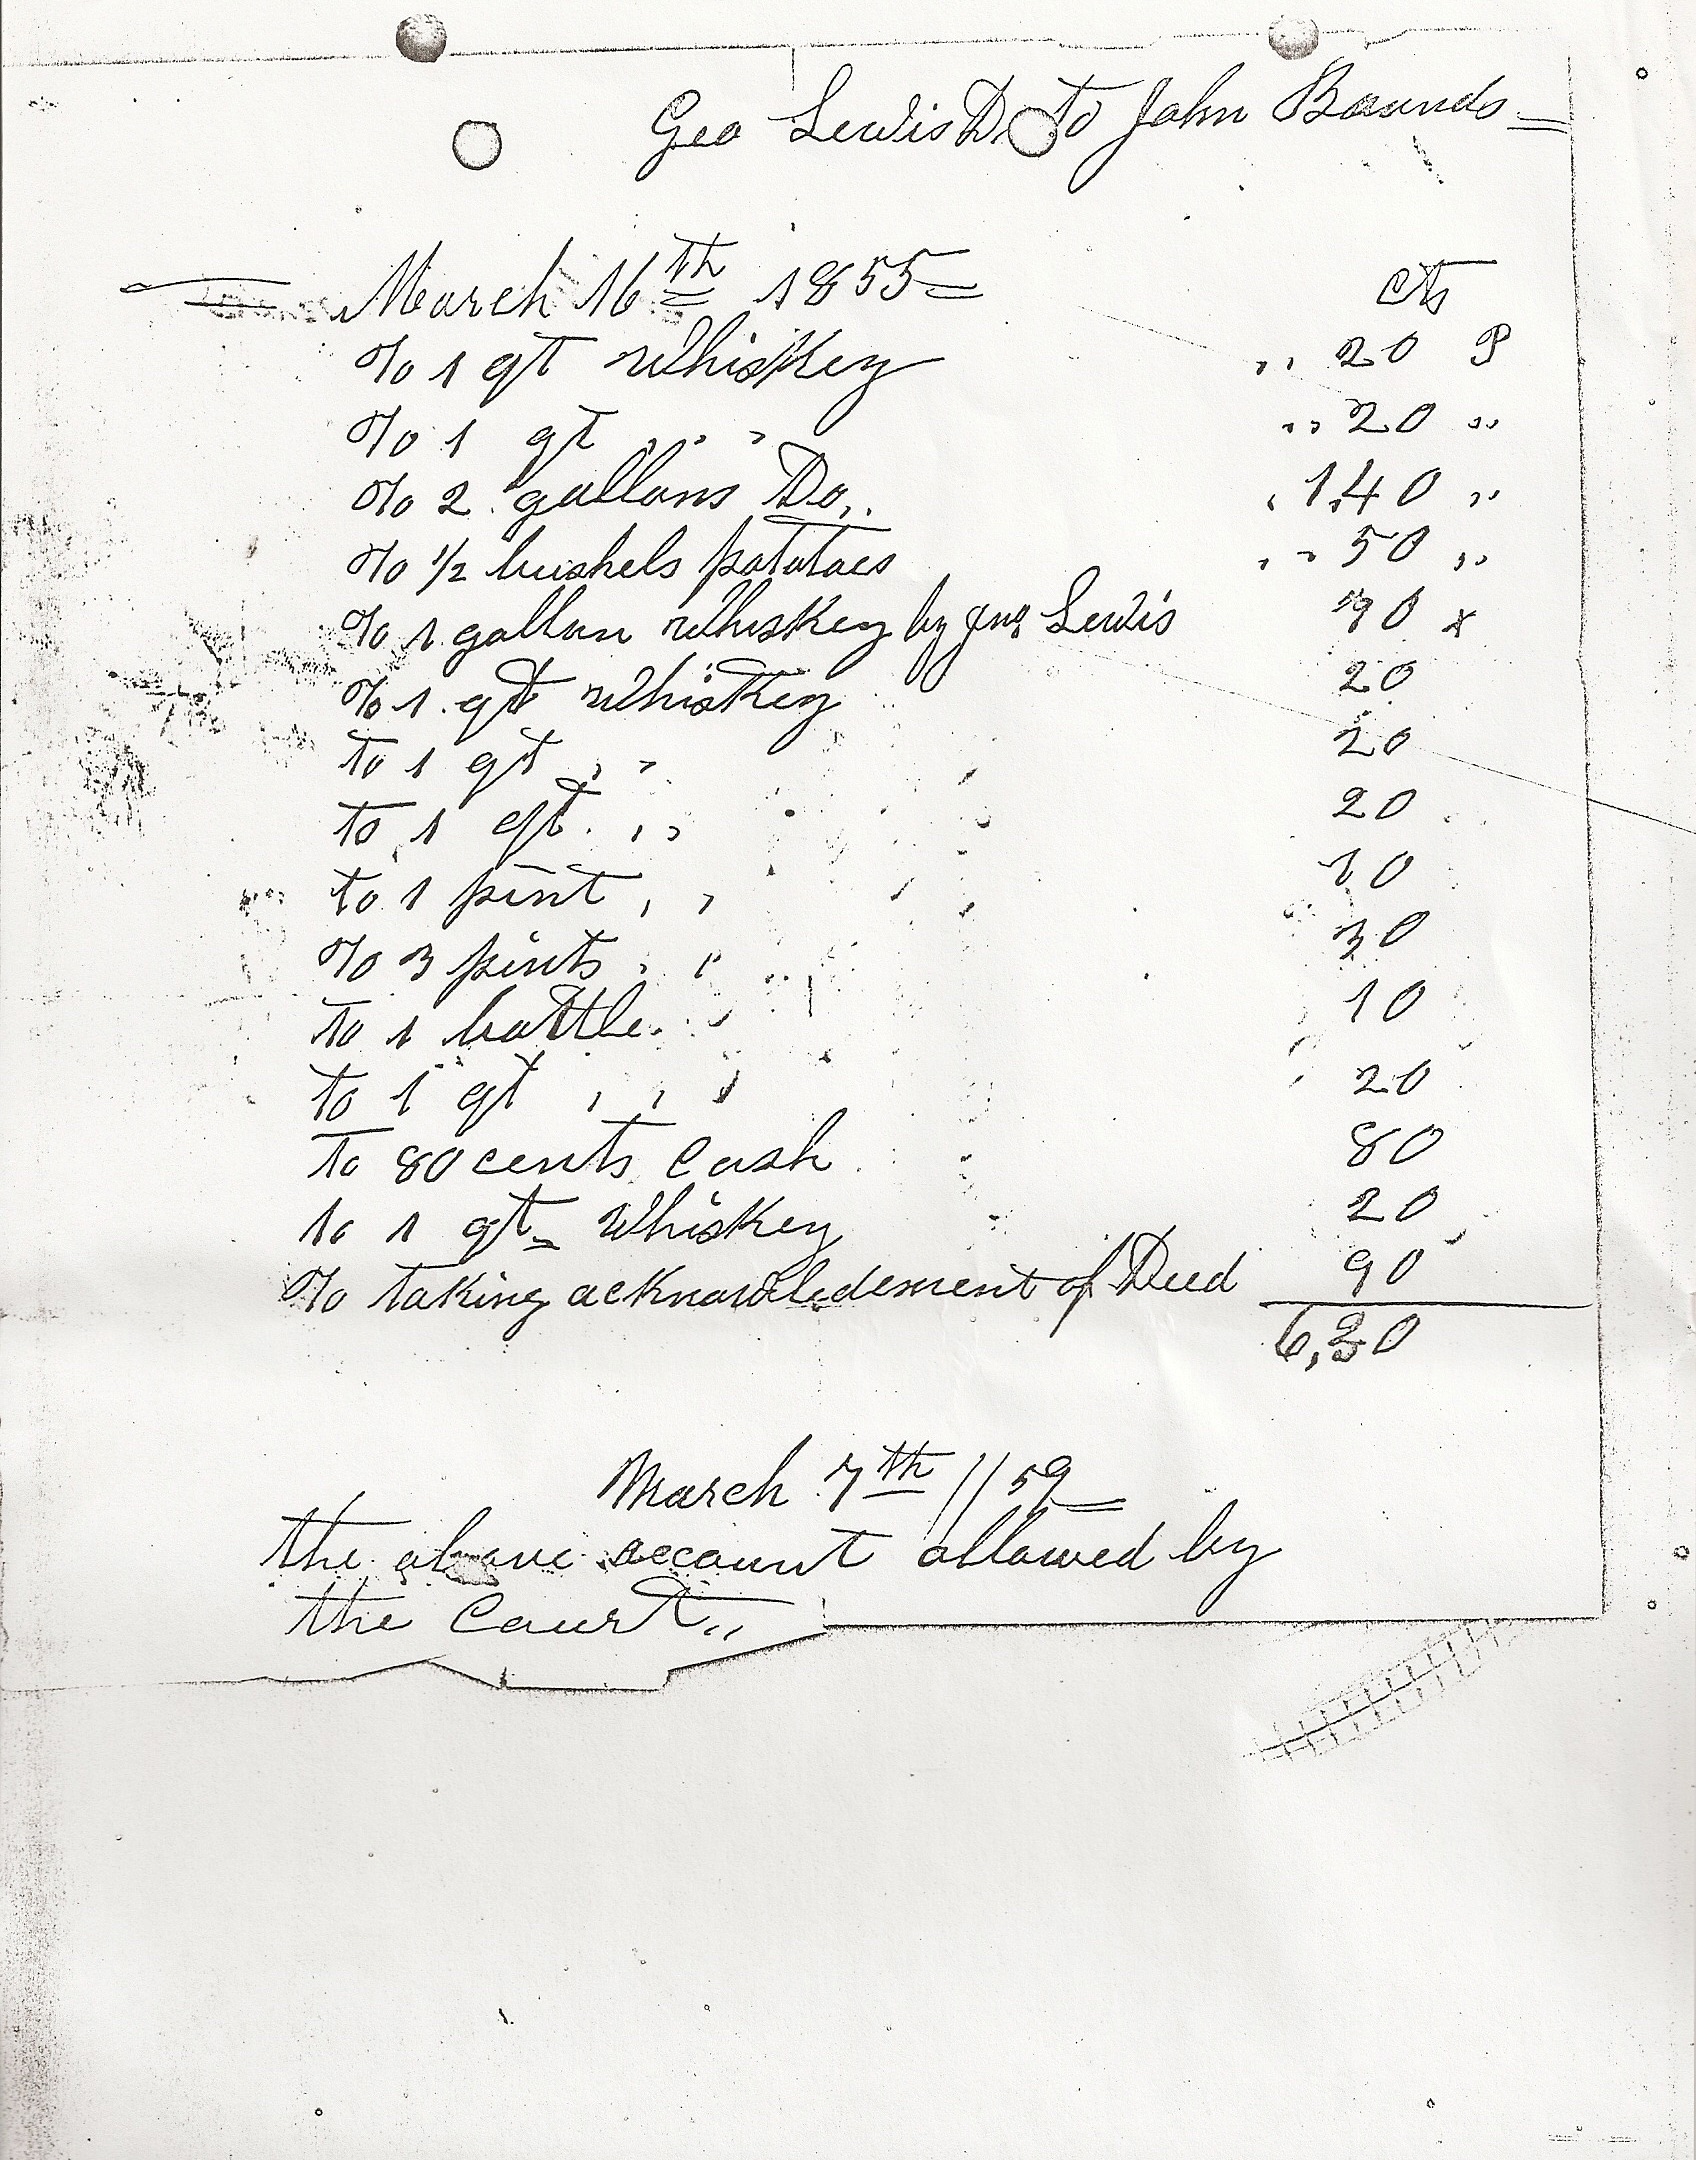 Geo Lewis Dr to John Bounds
March 16th 1855
cts
To 1 qt Whiskey ,, 20 P
To 1 qt ,, ,, ,, 20 ,,
To 2 gallons Do,, , 1,40 ,,
To 1/2 bushels potatoes ,, 50 ,,
To 1 gallon Whiskey by Jno Lewis 90 x
To 1 qt Whiskey 20
to 1 qt ,, 20
to 1 qt ,, 20
to 1 pint ,, 10
To 3 pints ,, 30
to 1 bottle 10
to 1 qt ,, 20
To 80 cents Cash 80
to 1 qt Whiskey 20
To taking acknowledement of Deed 90
6,30
March 7th // 59
the above account allowed by
the Court,,